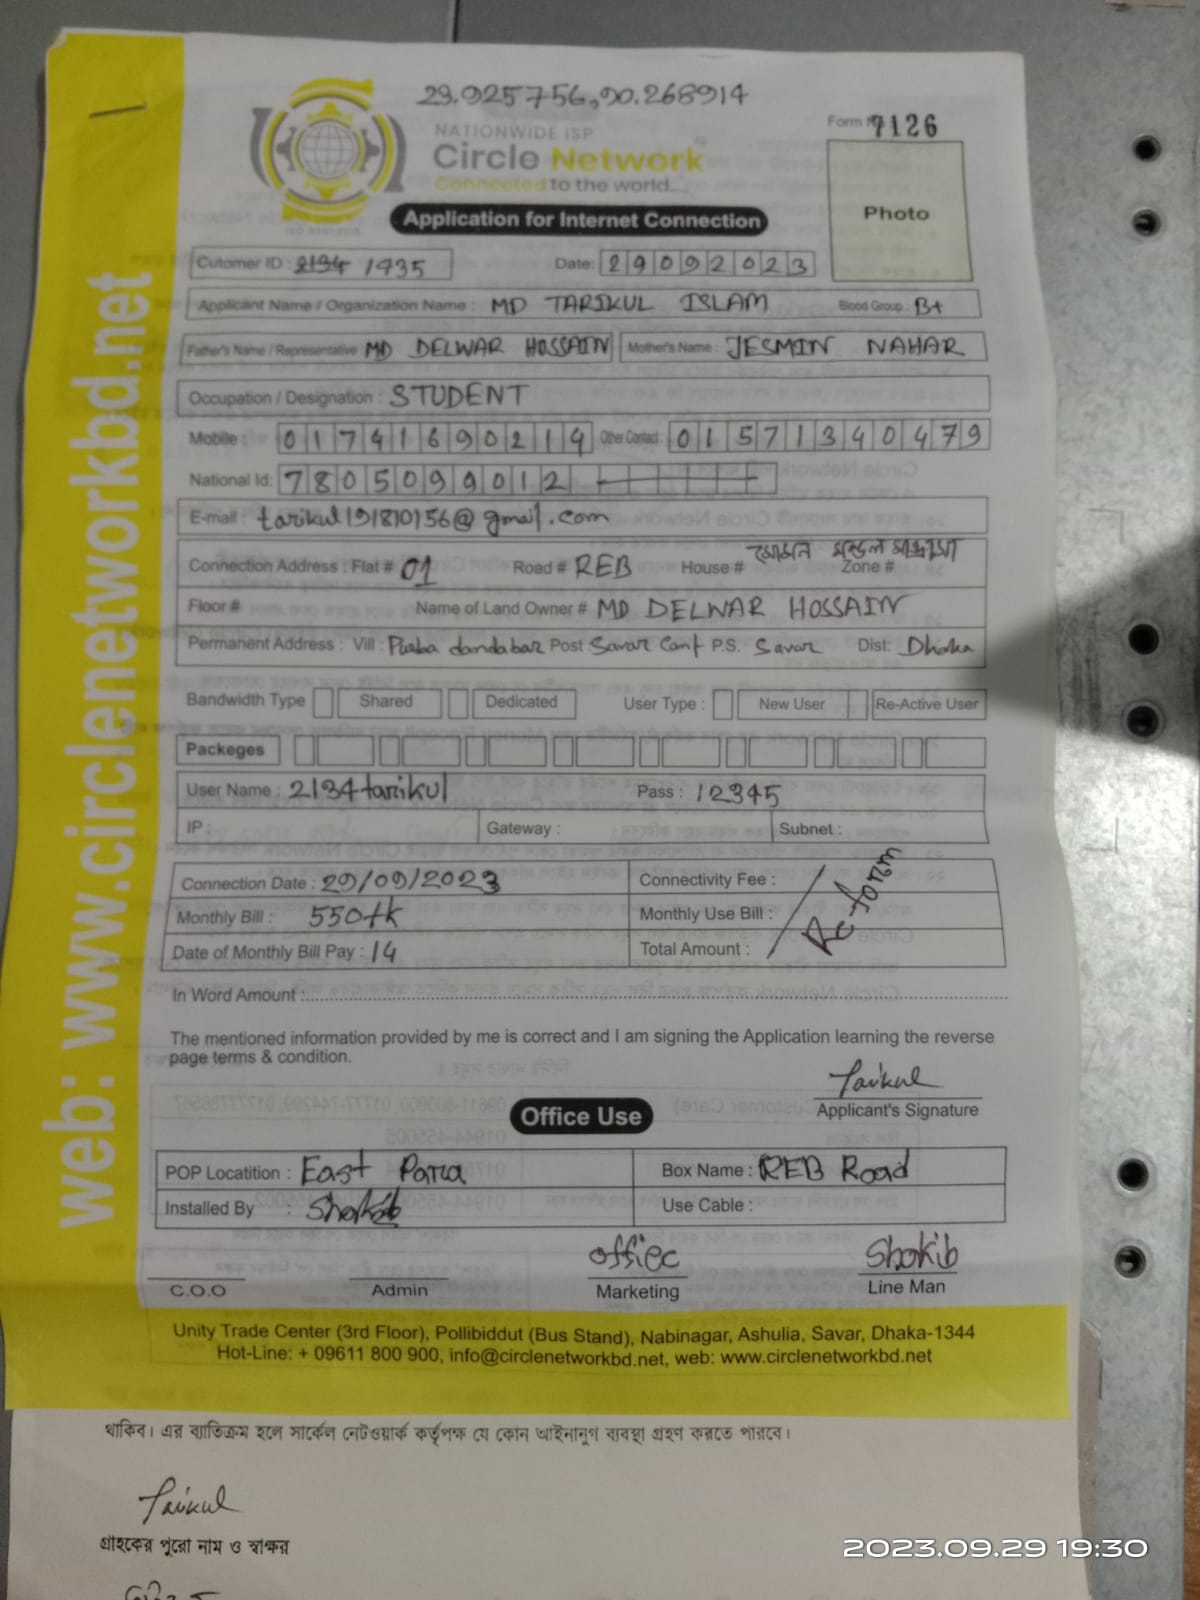 23.925756,90.268914
NATIONWIDE ISP
Form № 7126
Circle Network
Connected to the world...
Photo
Application for Internet Connection
Cutomer ID : 2134 1435 Date: 29092023
Applicant Name / Organization Name : MD TARIKUL ISLAM Blood Group : B+
Father's Name / Representative MD DELWAR HOSSAIN Mother's Name : JESMIN NAHAR
Occupation / Designation : STUDENT
Mobile : 01741690214 Other Contact : 01571340479
National Id: 7805099012
E-mail : tarikul191810156@gmail.com
Connection Address : Flat # 01 Road # REB House # Zone #
Floor # Name of Land Owner # MD DELWAR HOSSAIN
Permanent Address : Vill : Purba dandabar Post Savar Cant P.S. Savar Dist: Dhaka
Bandwidth Type Shared Dedicated User Type : New User Re-Active User
Packeges
User Name : 2134tarikul Pass : 12345
IP : Gateway : Subnet :
Connection Date : 29/09/2023 Connectivity Fee :
Monthly Bill : 550tk Monthly Use Bill :
Date of Monthly Bill Pay : 14 Total Amount :
Re-form
In Word Amount :
The mentioned information provided by me is correct and I am signing the Application learning the reverse
page terms & condition.
Tarikul
Applicant's Signature
Office Use
POP Locatition : East Para Box Name : REB Road
Installed By : Shokib Use Cable :
offiec Shokib
C.O.O Admin Marketing Line Man
Unity Trade Center (3rd Floor), Pollibiddut (Bus Stand), Nabinagar, Ashulia, Savar, Dhaka-1344
Hot-Line: + 09611 800 900, info@circlenetworkbd.net, web: www.circlenetworkbd.net
web: www.circlenetworkbd.net
থাকিব। এর ব্যাতিক্রম হলে সার্কেল নেটওয়ার্ক কর্তৃপক্ষ যে কোন আইনানুগ ব্যবস্থা গ্রহণ করতে পারবে।
Tarikul
গ্রাহকের পুরো নাম ও স্বাক্ষর
2023.09.29 19:30